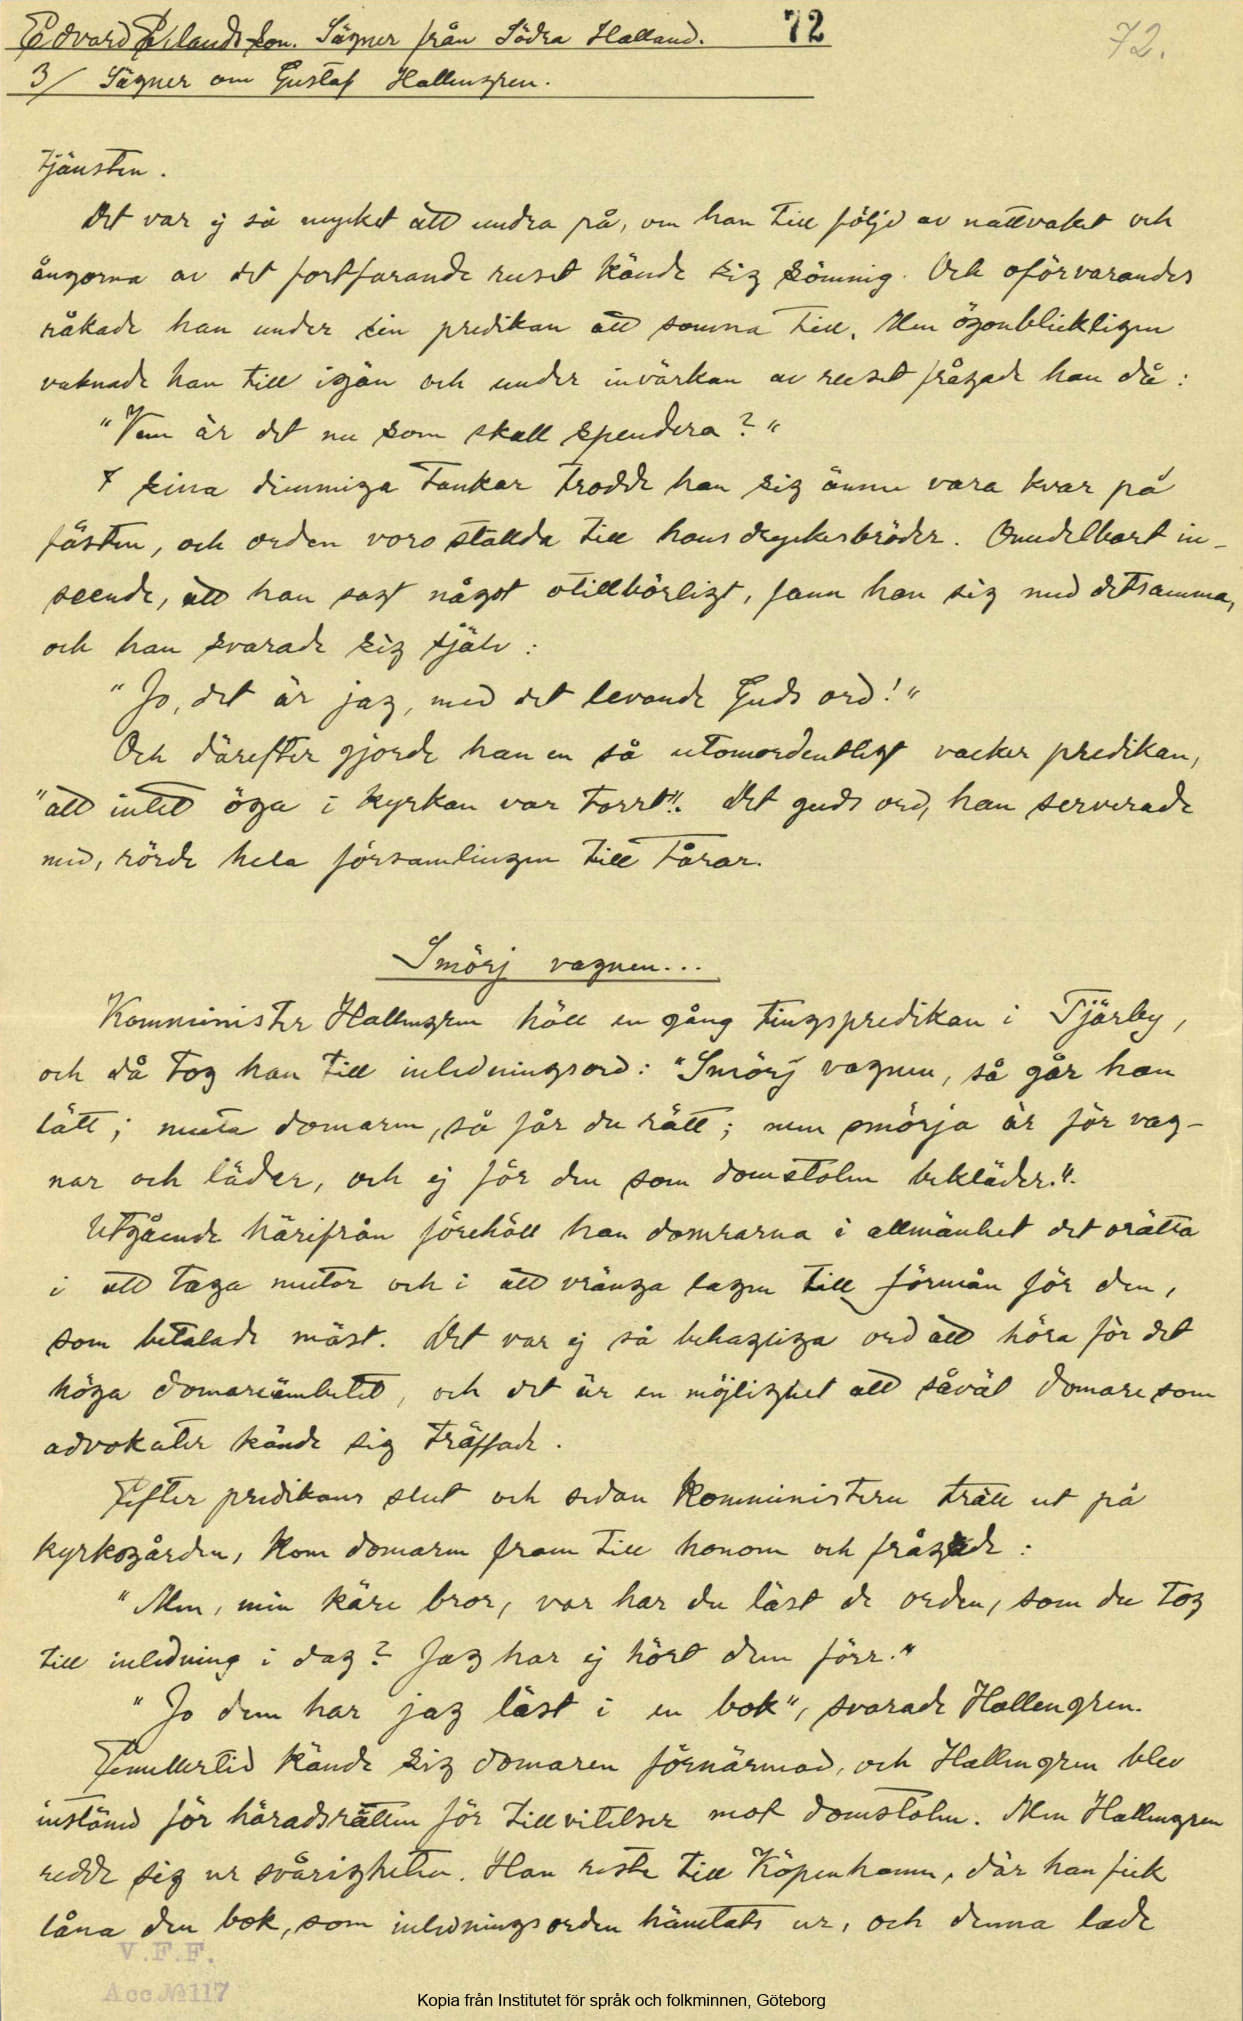 Edvard Erlandsson. Sägner från Södra Halland. 72 72.
3/ Sägner om Gustaf Hallengren.
tjänsten.
Det var ej så mycket att undra på, om han till följd av nattvaket och
ångorna av det fortfarande ruset kände sig sömnig. Och oförvarandes
råkade han under sin predikan att somna till. Men ögonblickligen
vaknade han till igän och under invärkan av ruset frågade han då:
"Vem är det nu som skall spendera?"
I sina dimmiga tankar trodde han sig ännu vara kvar på
fästen, och orden voro stallda till hans dryckesbröder. Omedelbart in-
seende, att han sagt något otillbörligt, fann han sig med detsamma,
och han svarade sig själv:
"Jo, det är jag, med det levande Guds ord!"
Och därefter gjorde han en så utomordentligt vacker predikan,
"att intet öga i kyrkan var torrt". Det guds ord, han serverade
med, rörde hela församlingen till tårar.
Smörj vagnen...
Komminister Hallengren höll en gång tingspredikan i Tjärby,
och då tog han till inledningsord: "Smörj vagnen, så går han
lätt; muta domaren, så får du rätt; men smörja är för vag-
nar och läder, och ej för den som domstolen bekläder.".
Utgående härifrån förehöll han domrarna i allmänhet det orätta
i att taga mutor och i att vränga lagen till förmån för den,
som betalade mäst. Det var ej så behagliga ord att höra för det
höga domareämbetet, och det är en möjlighet att såväl domare som
advokater kände sig träffade.
Efter predikans slut och sedan komministern trätt ut på
kyrkogården, kom domaren fram till honom och frågade:
"Men, min käre bror, var har du läst de orden, som du tog
till inledning i dag? Jag har ej hört dem förr."
"Jo dem har jag läst i en bok", svarade Hallengren.
Emellertid kände sig domaren förnärmad, och Hallengren blev
instämd för häradsrätten för tillvitelser mot domstolen. Men Hallengren
redde sig ur svårigheten. Han reste till Köpenhamn, där han fick
låna den bok, som inledningsorden hämtats ur, och denna lade
V.F.F.
Acc.№117
Kopia från Institutet för språk och folkminnen, Göteborg